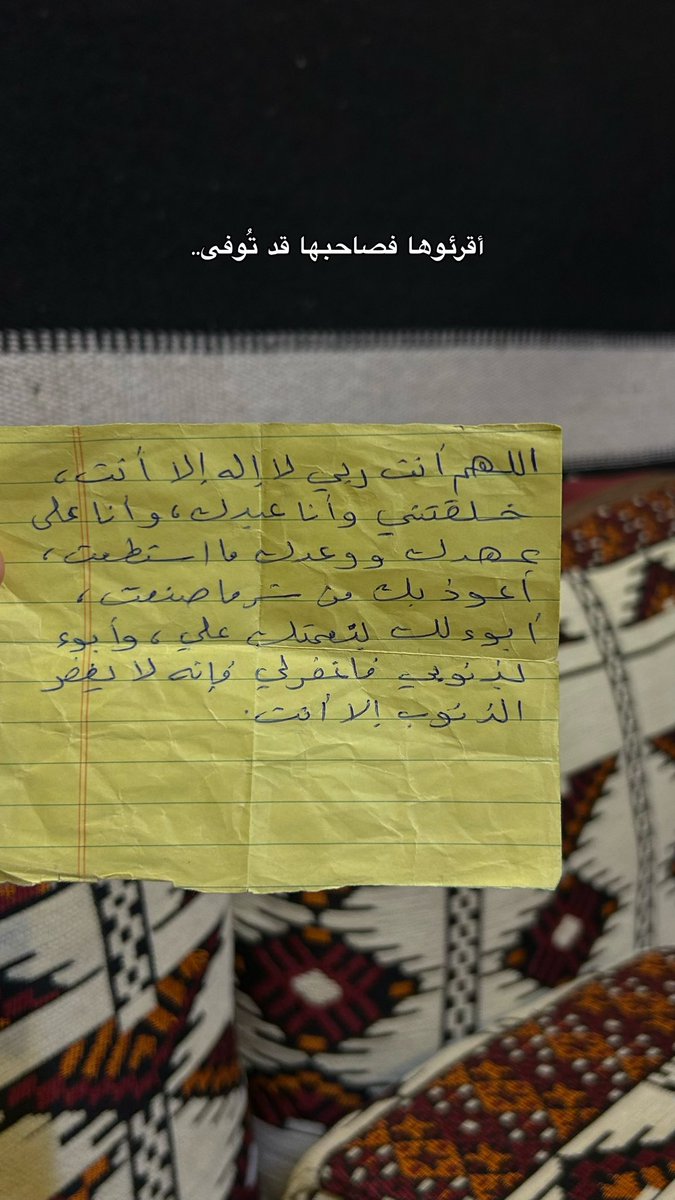 أقرئوها فصاحبها قد تُوفى..
اللهم أنت ربي لا إله إلا أنت،
خلقتني وأنا عبدك، وأنا على
عهدك ووعدك ما استطعت،
أعوذ بك من شر ما صنعت،
أبوء لك بنعمتك علي، وأبوء
بذنوبي فاغفرلي فإنه لا يغفر
الذنوب إلا أنت.